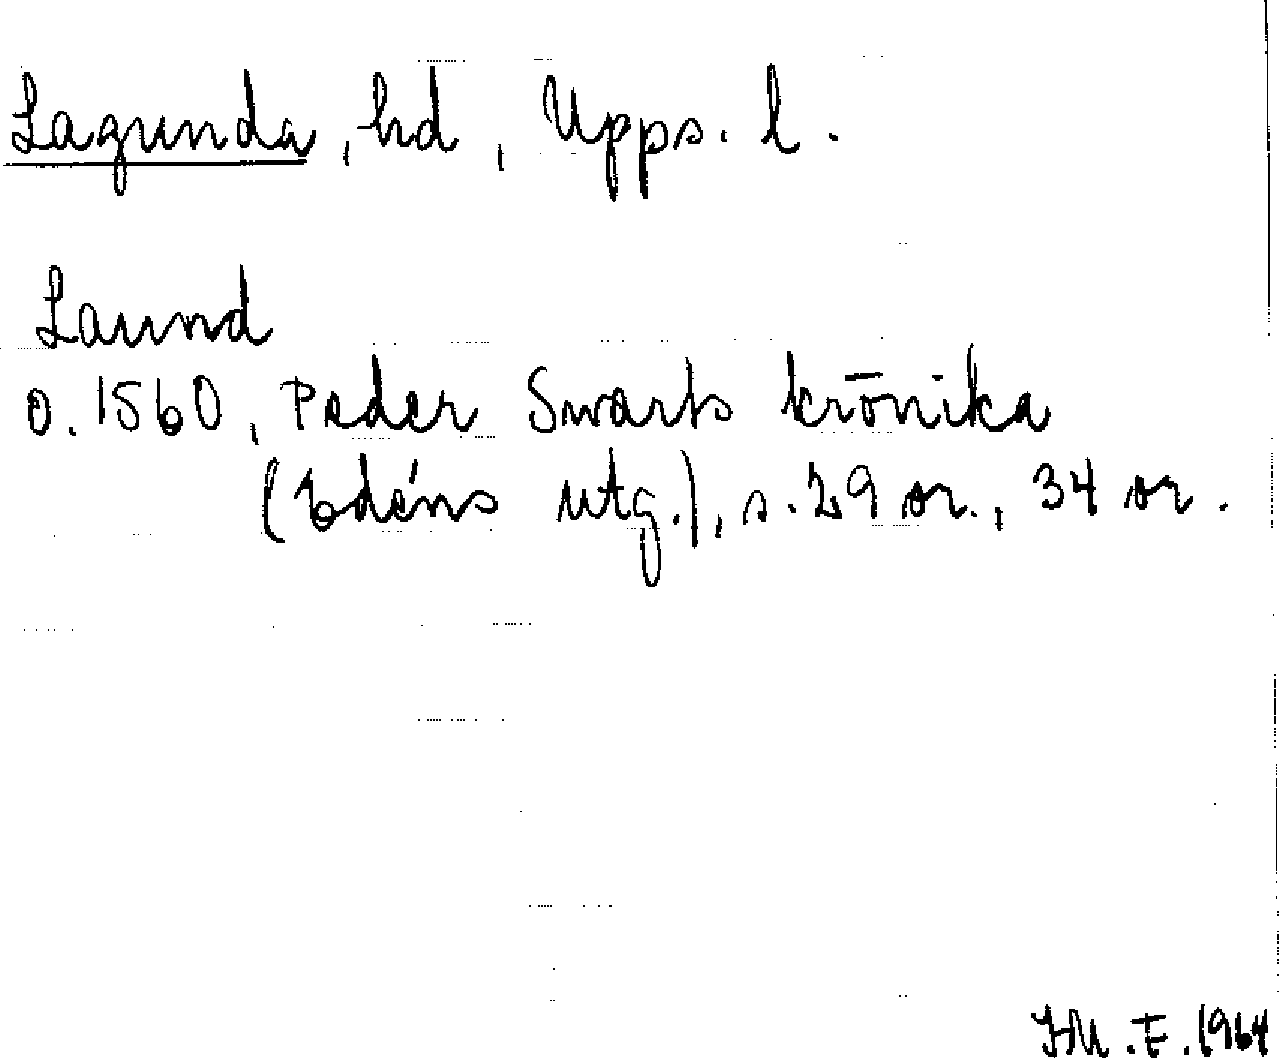 Lagunda, hd, Upps. l.
Laund
o. 1560, Peder Swarts krönika
(Edéns utg.), s. 29 or., 34 or.
1964